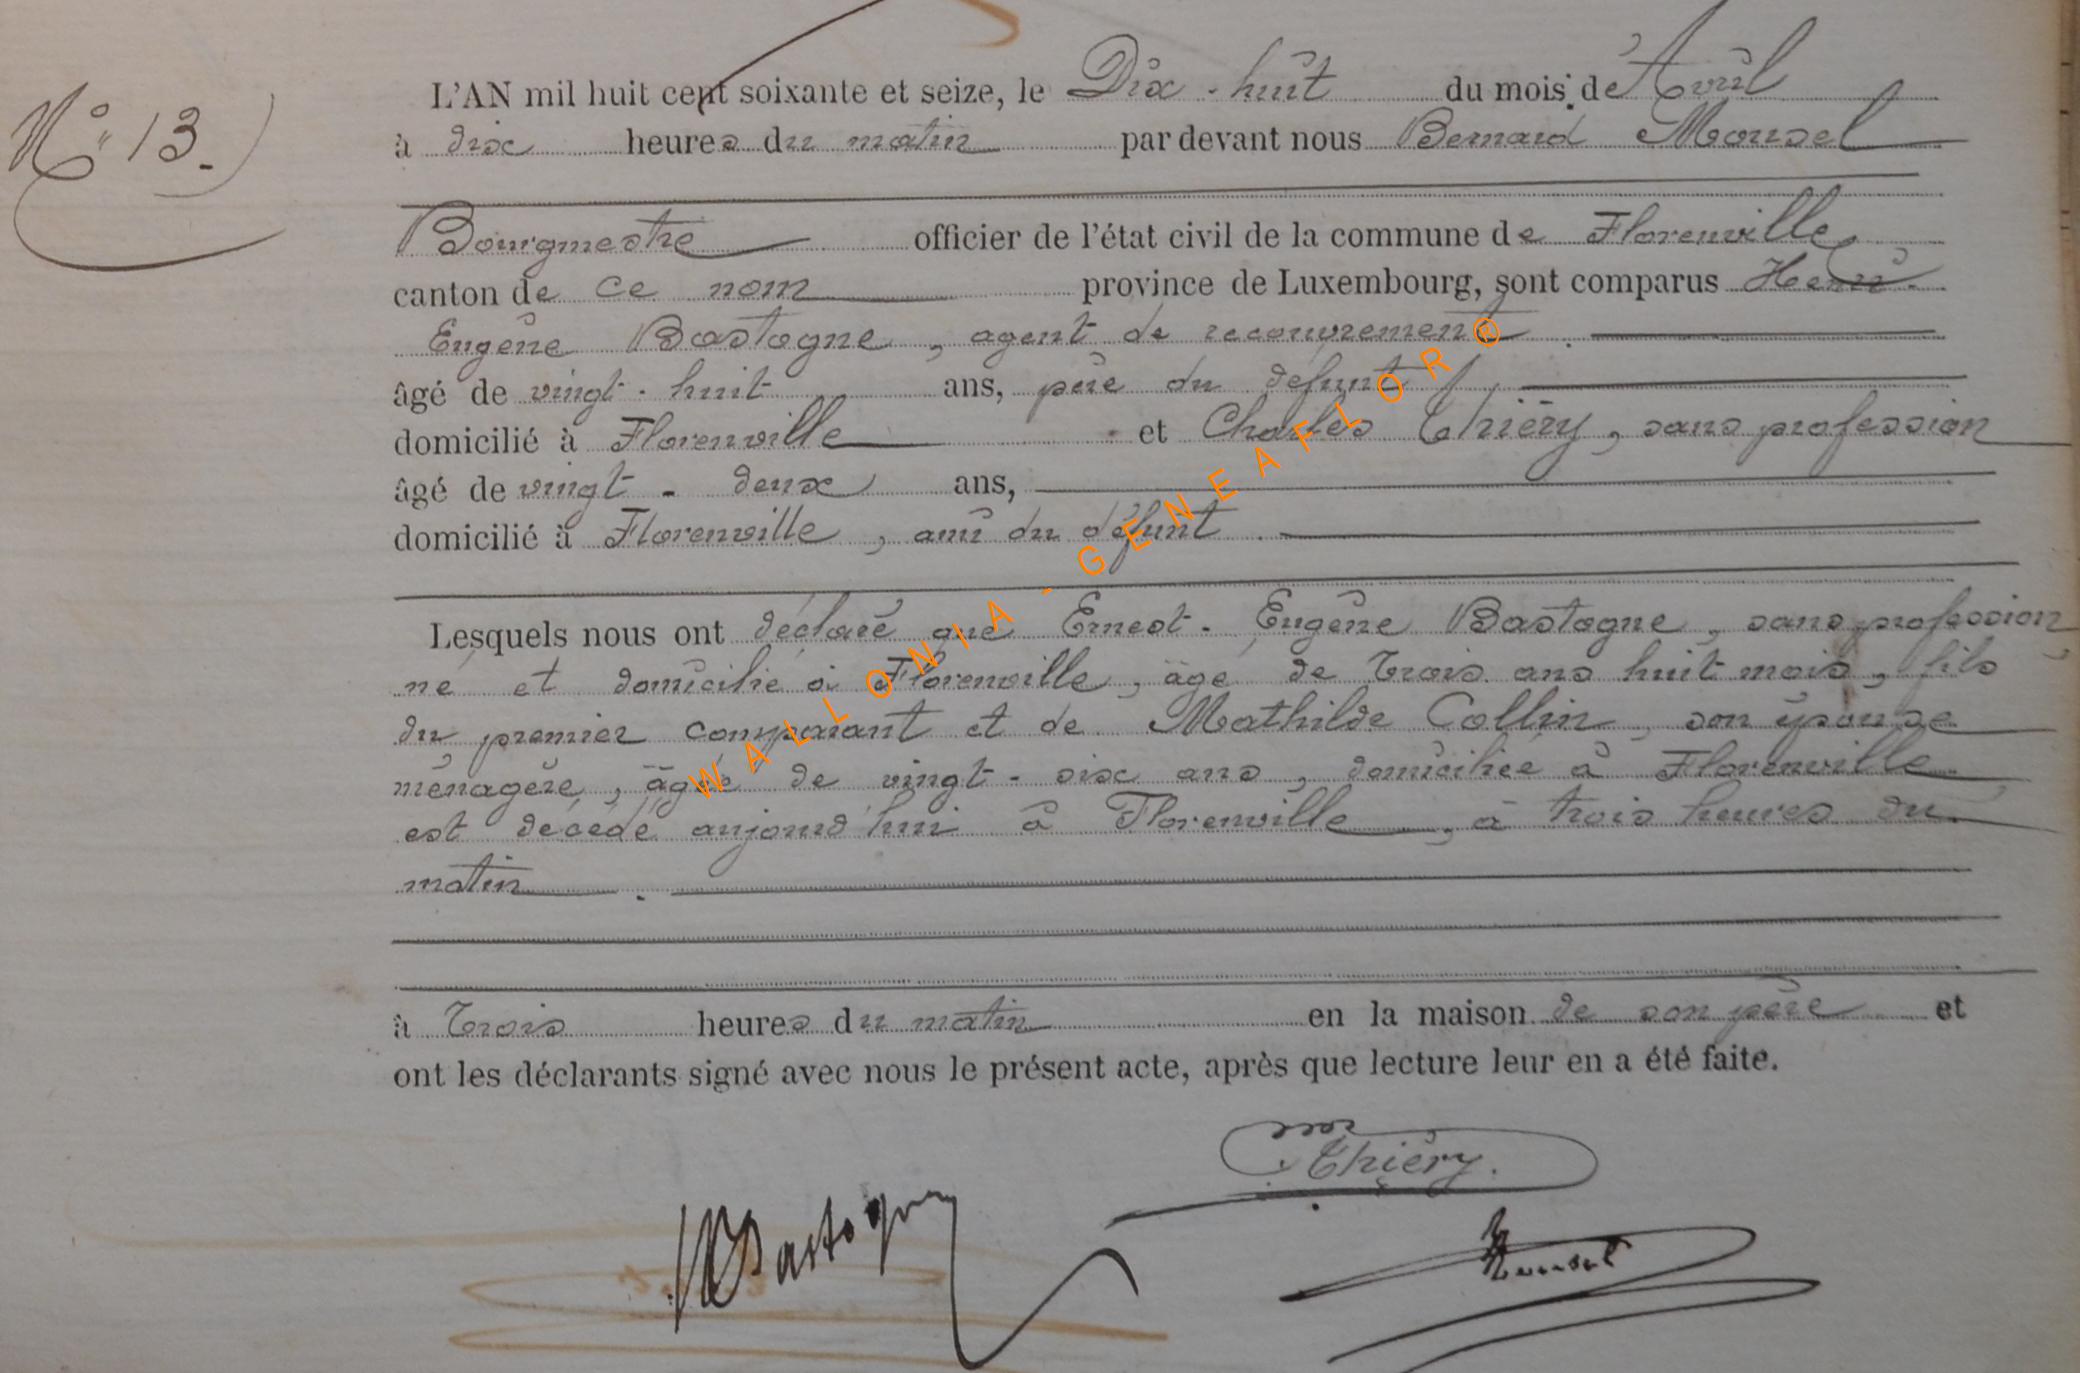 N° 13.
L'AN mil huit cent soixante et seize, le Dix-huit du mois de Avril
à dix heures du matin par devant nous Bernard Mousel
Bourgmestre officier de l'état civil de la commune de Florenville
canton de ce nom province de Luxembourg, sont comparus Henri-
Eugène Bastogne, agent de recouvrement.
âgé de vingt-huit ans, père du défunt,
domicilié à Florenville et Charles Thiéry, sans profession
âgé de vingt-deux ans,
domicilié à Florenville, ami du défunt.
Lesquels nous ont déclaré que Ernest-Eugène Bastogne, sans profession
né et domicilié à Florenville, âgé de trois ans huit mois, fils
du premier comparant et de Mathilde Collin, son épouse
ménagère, âgée de vingt-six ans, domiciliée à Florenville
est décédé aujourd'hui à Florenville, à trois heures du
matin.
à Trois heures du matin en la maison de son père et
ont les déclarants signé avec nous le présent acte, après que lecture leur en a été faite.
Thiéry.
Bastogne
Mousel
WALLONIA-GENEAFLOR®